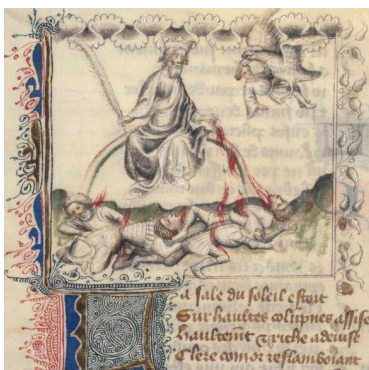 a sale du soleil estoit
Sur haultes colupnes assise
haultemt & riche a deuise
Clere com or reflamboiant